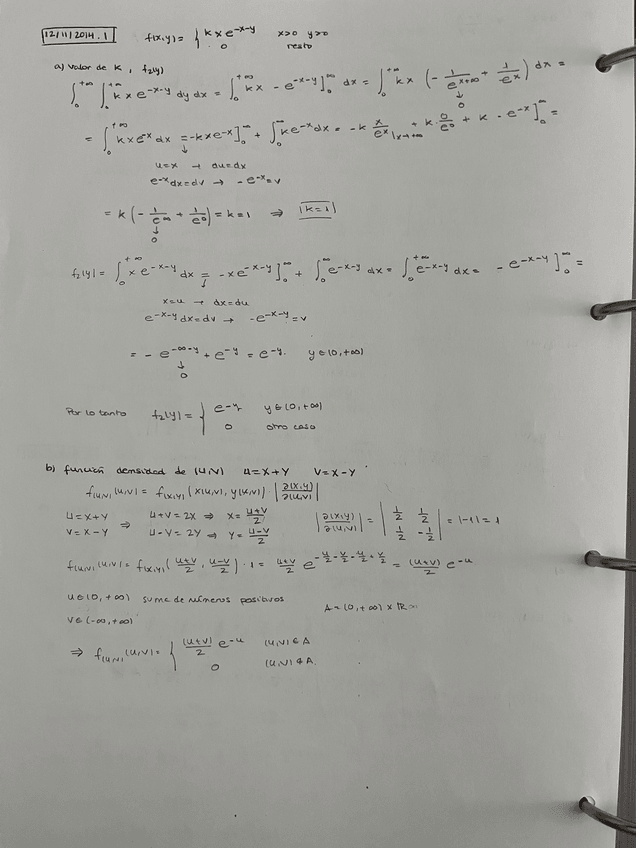 12/11/2014.1   f(x,y) = { k x e^{-x-y}   x>0 y>0
0   resto
a) Valor de k, f₂(y)
∫₀^{+∞} ∫₀^{+∞} k x e^{-x-y} dy dx = ∫₀^{+∞} kx - e^{-x-y} ]₀^∞ dx = ∫₀^{+∞} kx (- 1/e^{x+∞} + 1/e^x) dx =
↓
0
= ∫₀^{+∞} k x e^{-x} dx = -k x e^{-x} ]₀^∞ + ∫₀^∞ k e^{-x} dx = -k x/e^x |x→+∞ + k · 0/e⁰ + k - e^{-x} ]₀^∞ =
↓
u=x → du=dx
e^{-x}dx=dv → -e^{-x}=v
= k (- 1/e^∞ + 1/e⁰) = k = 1 ⇒ |k=1|
↓
0
f₂(y) = ∫₀^{+∞} x e^{-x-y} dx = -x e^{-x-y} ]₀^∞ + ∫₀^∞ e^{-x-y} dx = ∫₀^{+∞} e^{-x-y} dx = - e^{-x-y} ]₀^∞ =
↓
x=u → dx=du
e^{-x-y}dx=dv → -e^{-x-y}=v
= - e^{-∞-y} + e^{-y} = e^{-y}. y∈(0,+∞)
↓
0
Por lo tanto   f₂(y) = { e^{-y}   y∈(0,+∞)
0   otro caso
b) función densidad de (U,V)   U=X+Y   V=X-Y
f_{(U,V)}(u,v) = f_{(X,Y)}(x(u,v), y(u,v)) · |∂(x,y)/∂(u,v)|
U=X+Y ⇒ U+V=2X → X= (U+V)/2   |∂(x,y)/∂(u,v)| = | 1/2   1/2 | = |-1| = 1
V=X-Y   U-V=2Y → Y= (U-V)/2   | 1/2   -1/2 |
f_{(U,V)}(u,v) = f_{(X,Y)}((u+v)/2, (u-v)/2) · 1 = (u+v)/2 e^{-u/2-v/2-u/2+v/2} = (u+v)/2 e^{-u}
u∈(0,+∞) suma de números positivos
A = (0,+∞) × ℝ
v∈(-∞,+∞)
⇒ f_{(U,V)}(u,v) = { (u+v)/2 e^{-u}   (u,v)∈A
0   (u,v)∉A.